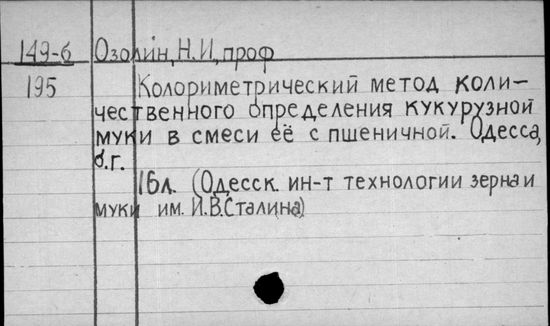 149-б Озолин, Н.И, проф
195 Колориметрический метод коли-
чественного определения кукурузной
муки в смеси её с пшеничной. Одесса,
б.г.
16л. (Одесск. ин-т технологии зерна и
муки им. И.В.Сталина)